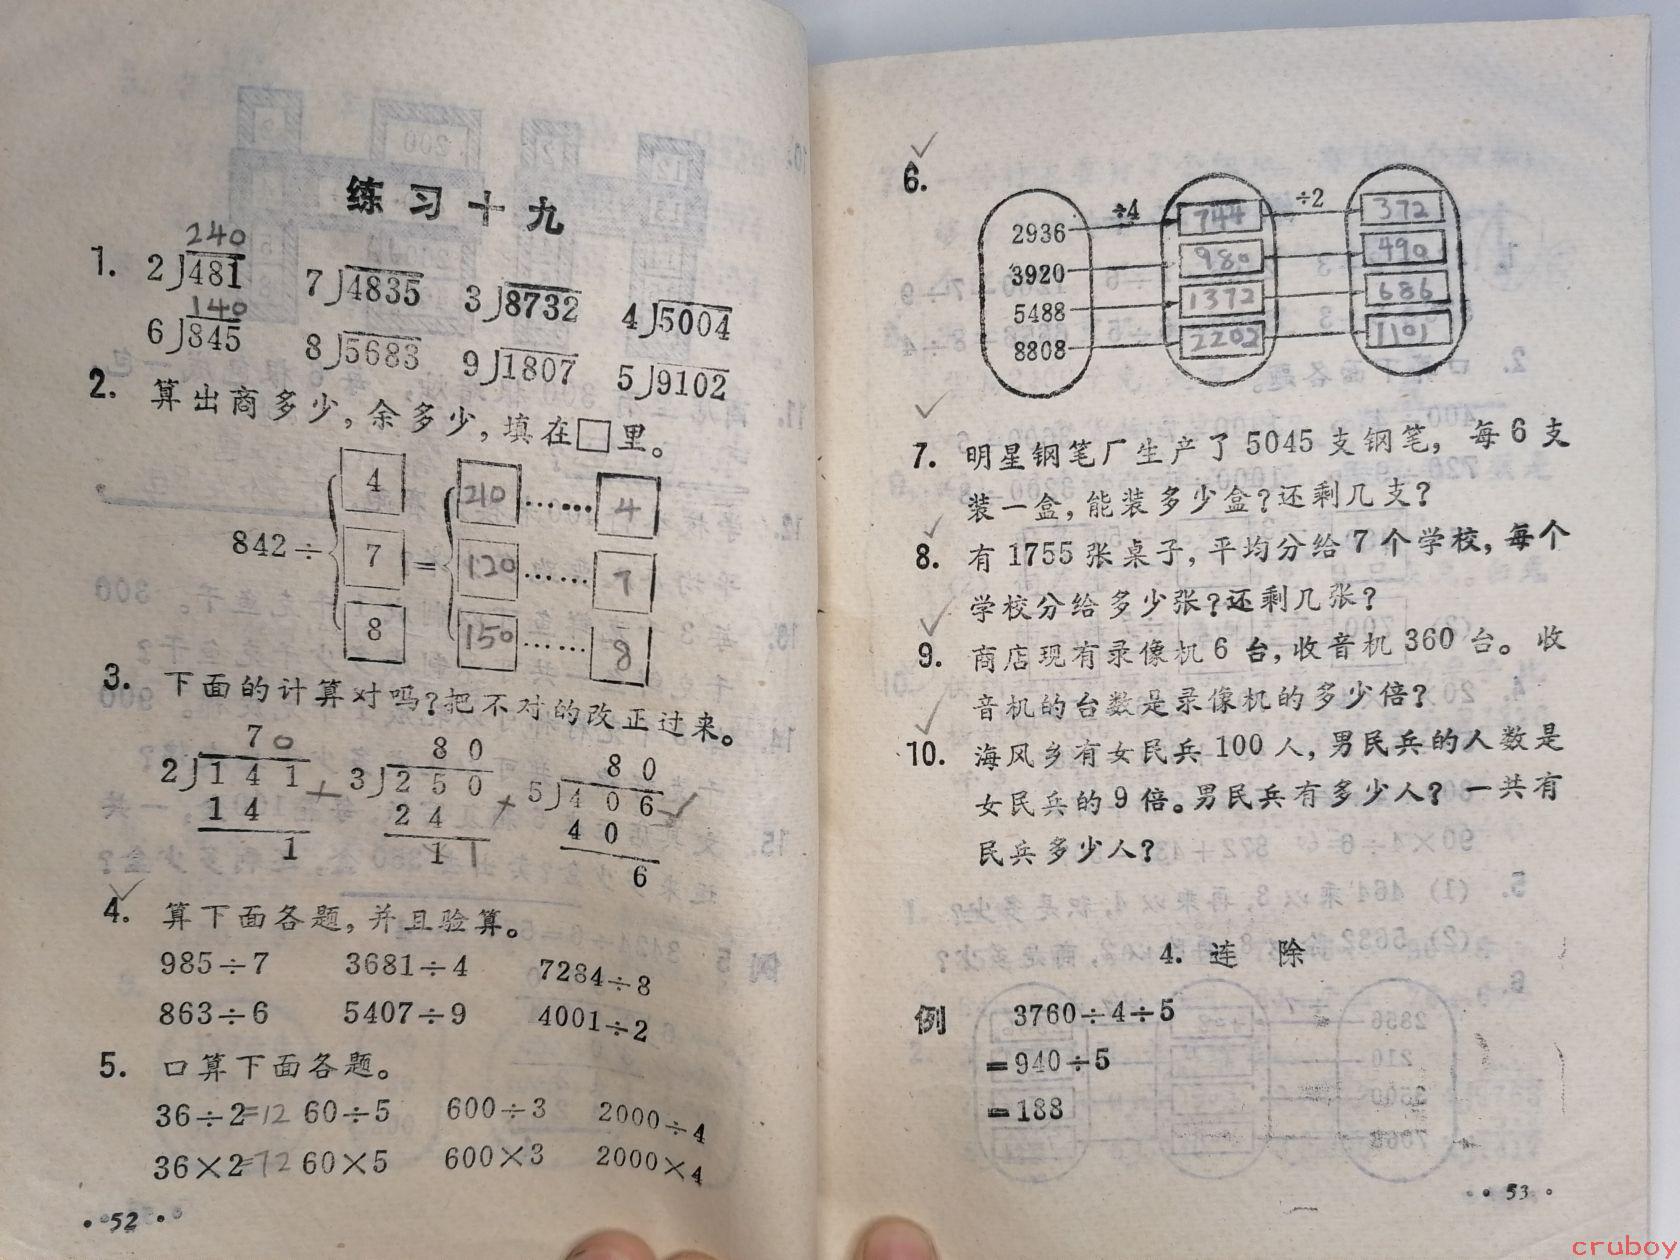 练习十九
240
1. 2)481 7)4835 3)8732 4)5004
140
6)845 8)5683 9)1807 5)9102
2. 算出商多少，余多少，填在□里。
4 210……4
842÷ 7 = 120……7
8 150……8
3. 下面的计算对吗？把不对的改正过来。
70 80 80
2)141 3)250 5)406
14 24 40
1 11 6
4. 算下面各题，并且验算。
985÷7 3681÷4 7284÷8
863÷6 5407÷9 4001÷2
5. 口算下面各题。
36÷2=12 60÷5 600÷3 2000÷4
36×2=72 60×5 600×3 2000×4
·52·
6.
÷4 ÷2
2936 744 372
3920 980 490
5488 1372 686
8808 2202 1101
7. 明星钢笔厂生产了5045支钢笔，每6支
装一盒，能装多少盒？还剩几支？
8. 有1755张桌子，平均分给7个学校，每个
学校分给多少张？还剩几张？
9. 商店现有录像机6台，收音机360台。收
音机的台数是录像机的多少倍？
10. 海风乡有女民兵100人，男民兵的人数是
女民兵的9倍。男民兵有多少人？一共有
民兵多少人？
4. 连除
例 3760÷4÷5
=940÷5
=188
·53·
cruboy